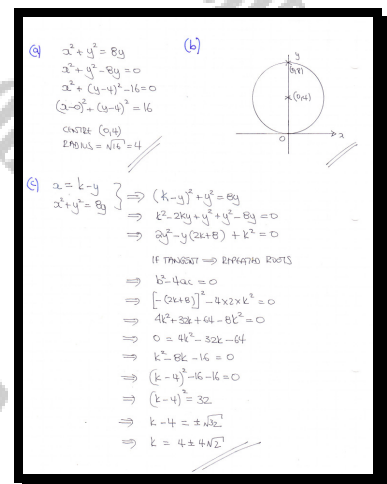 (a) x² + y² = 8y
x² + y² - 8y = 0
x² + (y-4)² - 16 = 0
(x-0)² + (y-4)² = 16
CENTRE (0,4)
RADIUS = √16 = 4
(b)
y
(0,8)
(0,4)
O
x
(c) x = k - y
x² + y² = 8y } ⇒ (k-y)² + y² = 8y
⇒ k² - 2ky + y² + y² - 8y = 0
⇒ 2y² - y(2k+8) + k² = 0
IF TANGENT ⇒ REPEATED ROOTS
⇒ b² - 4ac = 0
⇒ [-(2k+8)]² - 4×2×k² = 0
⇒ 4k² + 32k + 64 - 8k² = 0
⇒ 0 = 4k² - 32k - 64
⇒ k² - 8k - 16 = 0
⇒ (k-4)² - 16 - 16 = 0
⇒ (k-4)² = 32
⇒ k - 4 = ±√32
⇒ k = 4 ± 4√2